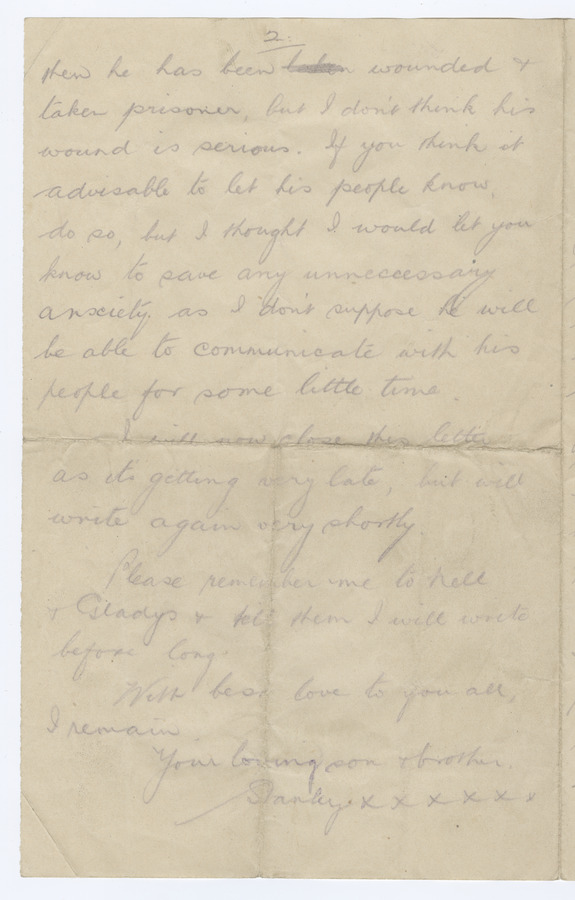 2.
then he has been taken wounded &
taken prisoner, but I don't think his
wound is serious. If you think it
advisable to let his people know,
do so, but I thought I would let you
know to save any unneccessary
anxiety, as I don't suppose he will
be able to communicate with his
people for some little time.
I will now close this letter
as its getting very late, but will
write again very shortly.
Please remember me to Nell
& Gladys & tell them I will write
before long.
With best love to you all,
I remain
Your loving son & brother.
Stanley. x x x x x x